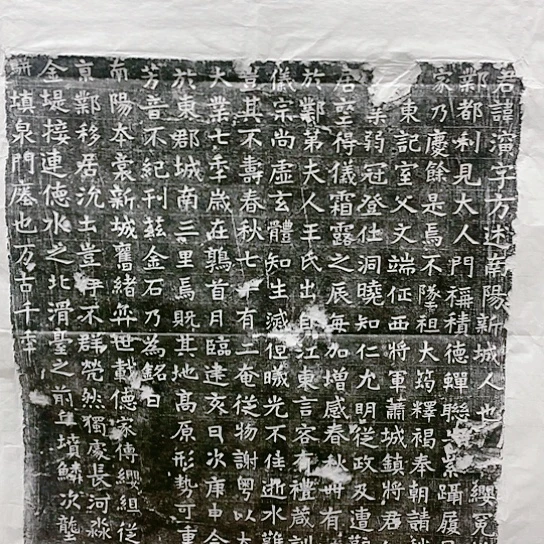 君諱演字方述南陽新城人也纓冕
鄴都利見大人門稱積德輝聯系躡履
家乃慶餘是焉不墜祖大筠釋褐奉朝請
東記室父文端征西將軍蕭城鎮將君
弱冠登仕洞曉知仁允明從政及遭
居堂得儀霜露之辰每加增感春秋卅有
於鄴第夫人王氏出自江東言容有禮箴訓
儀宗尚虛玄體知生滅但曦光不住逝水難
豈其不壽春秋七十有二奄從物謝粵以大
大業七年歲在鶉首月臨建亥日次庚申合
於東郡城南三里焉既其地高原形勢可重
芳音不紀刊茲金石乃為銘曰
南陽本裔新城舊緒弈世載德家傳纓組從
京鄴移居沇土豈不群煢然獨處長河淼
金堤接連德水之北滑臺之前年墳鱗次壟
駢填泉門曆也万古千年